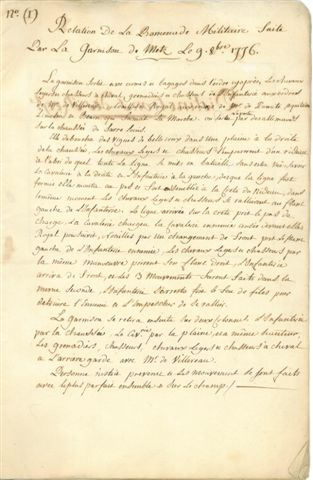 Nº. (1)
Relation De La Promenade Militaire faite
Par La Garnison de Metz Le 9. 8bre 1776.
La garnison sortie avec armes et bagages dans l'ordre cy après, Les chevaux
Legers et chasseurs à cheval, grenadiers et chasseurs de l'infanterie aux ordres
de Mr. de Villereau
la Marche,
sur la chaussée de Sarre Louis.
Au débouché des Vignes de bellecroix dans une plaine à la droite
de la chaussée, Les chevaux Legers et chasseurs s'emparerent d'un
à l'abri du quel toute La Ligne se mit en bataille
La cavalerie à la droite et L'Infanterie à la gauche, des que la ligne fut
formée elle monta au pas et fut ensemble à la Crete du Rideau, dans
le même moment les chevaux Legers et chasseurs se rallierent au flanc
gauche de L'Infanterie. La ligne arrivée sur la crete prit le pas de
charge, La Cavalerie chargea la Cavalerie ennemie
Royal poursuivit, Noailles par un changement de front prit le flanc
gauche de l'Infanterie ennemie, Les chevaux Legers et chasseurs par
la même manoeuvre prirent son flanc droit, L'Infanterie
arriva de front, et ces 3 Mouvements furent faits dans la
même seconde, L'Infanterie s'arreta fit le feu de files pour
détruire l'Ennemi et l'empêcher de se rallier.
La garnison se retira ensuite sur deux colonnes, L'Infanterie
par la chaussée, La Cavrie par la plaine, à la même hauteur,
Les grenadiers, chasseurs, chevaux Legers et chasseurs à cheval
à l'arriere garde avec Mr. de Villereau.
Personne n'étoit prévenu et les mouvements se sont faits
avec le plus parfait ensemble et sur le champ./.